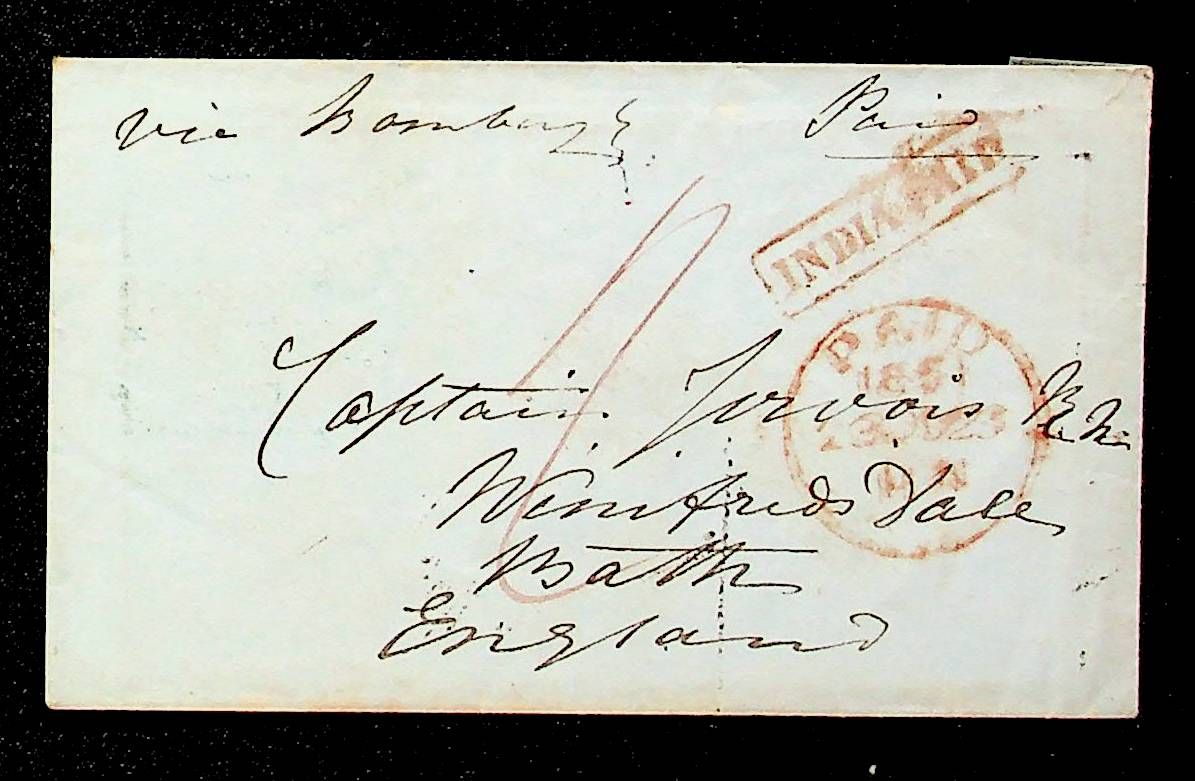 via Bombay Paid
INDIA PAID
PAID
1851
Captain Jervois R.N.
Winifreds Dale
Bath
England